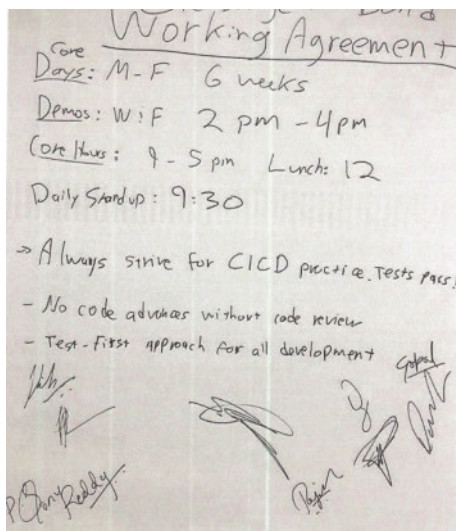 Working Agreement
Core
Days: M-F 6 weeks
Demos: W:F 2 pm - 4 pm
Core Hours: 9 - 5 pm Lunch: 12
Daily Standup: 9:30
→ Always strive for CICD practice. Tests pass!
- No code advances without code review
- Test-first approach for all development
Gopal
Rajan
Reddy